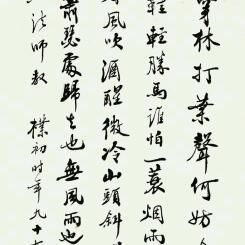 穿林打葉聲何妨
鞋輕勝馬誰怕一蓑烟雨
風吹酒醒微冷山頭斜
蕭瑟處歸去也無風雨也
法師教 樸初時年九十